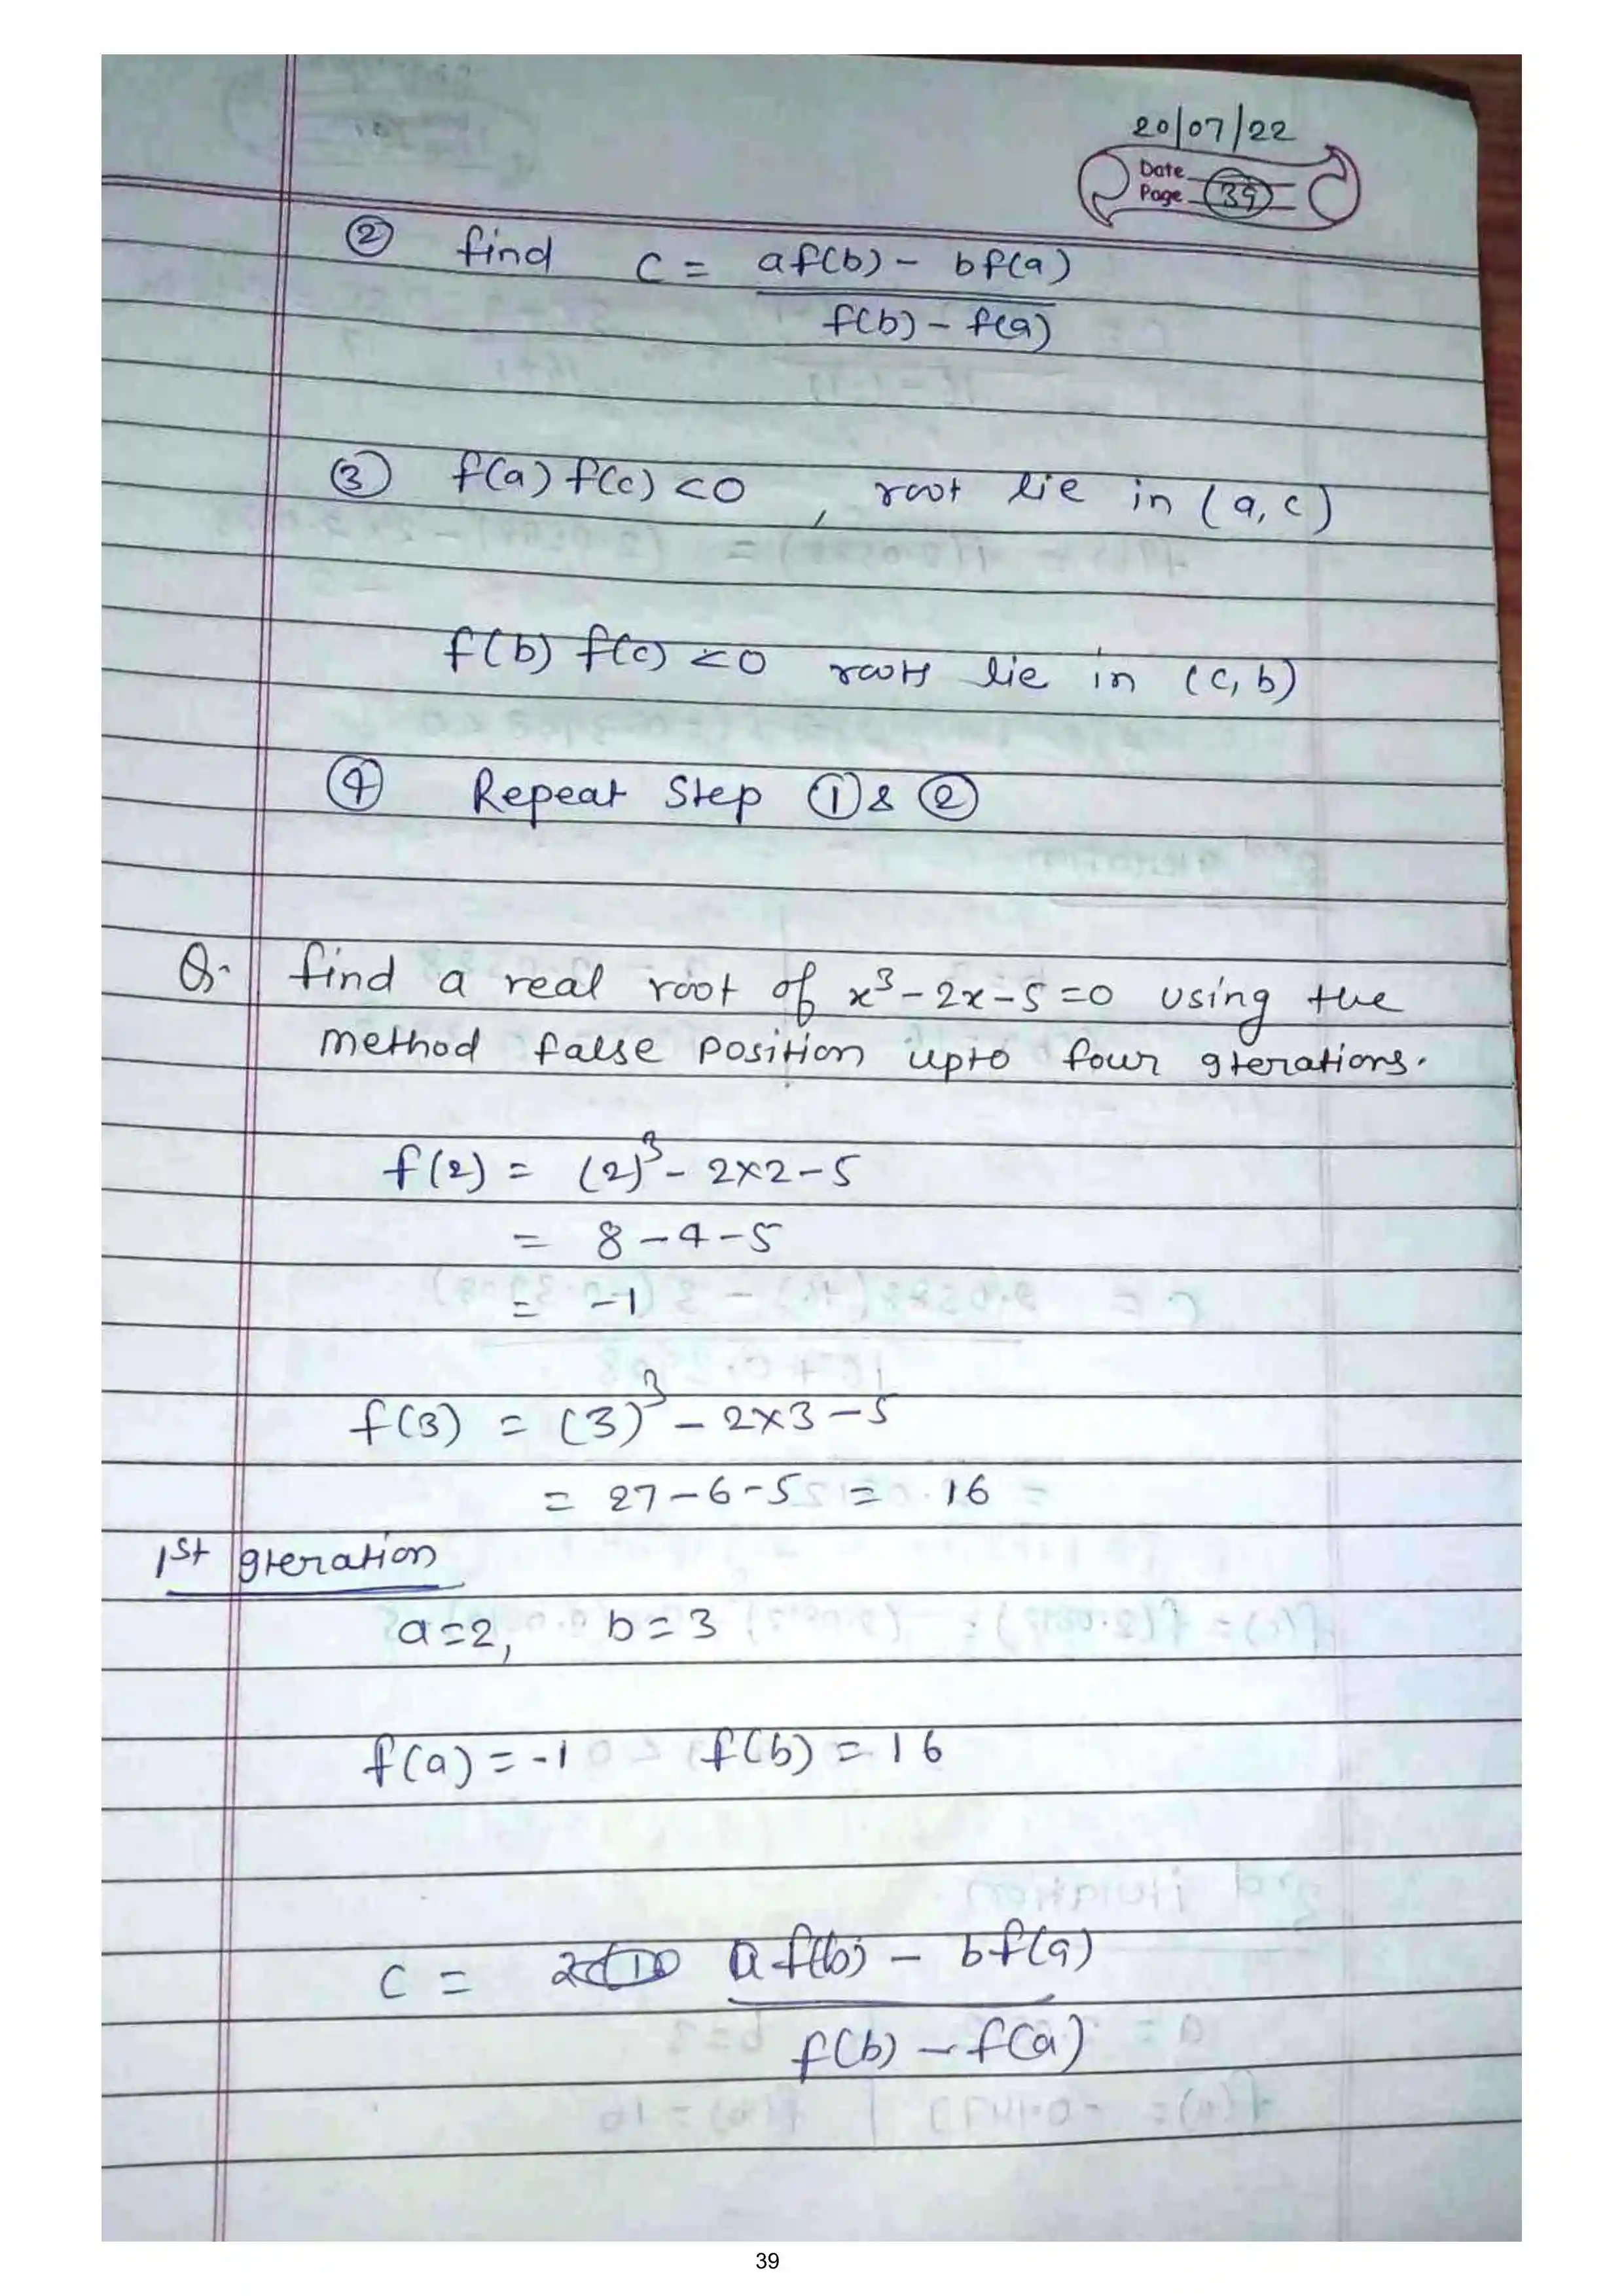 20/07/22
Date
Page 39
② find c = af(b) - bf(a)
f(b) - f(a)
③ f(a) f(c) <0 , root lie in (a, c)
f(b) f(c) <0 roots lie in (c, b)
④ Repeat Step ① & ②
Q. find a real root of x³ - 2x - 5 = 0 using the
method false position upto four iterations.
f(2) = (2)³ - 2×2 - 5
= 8 - 4 - 5
= -1
f(3) = (3)³ - 2×3 - 5
= 27 - 6 - 5 = 16
1st iteration
a=2, b=3
f(a) = -1 f(b) = 16
c = af(b) - bf(a)
f(b) - f(a)
39